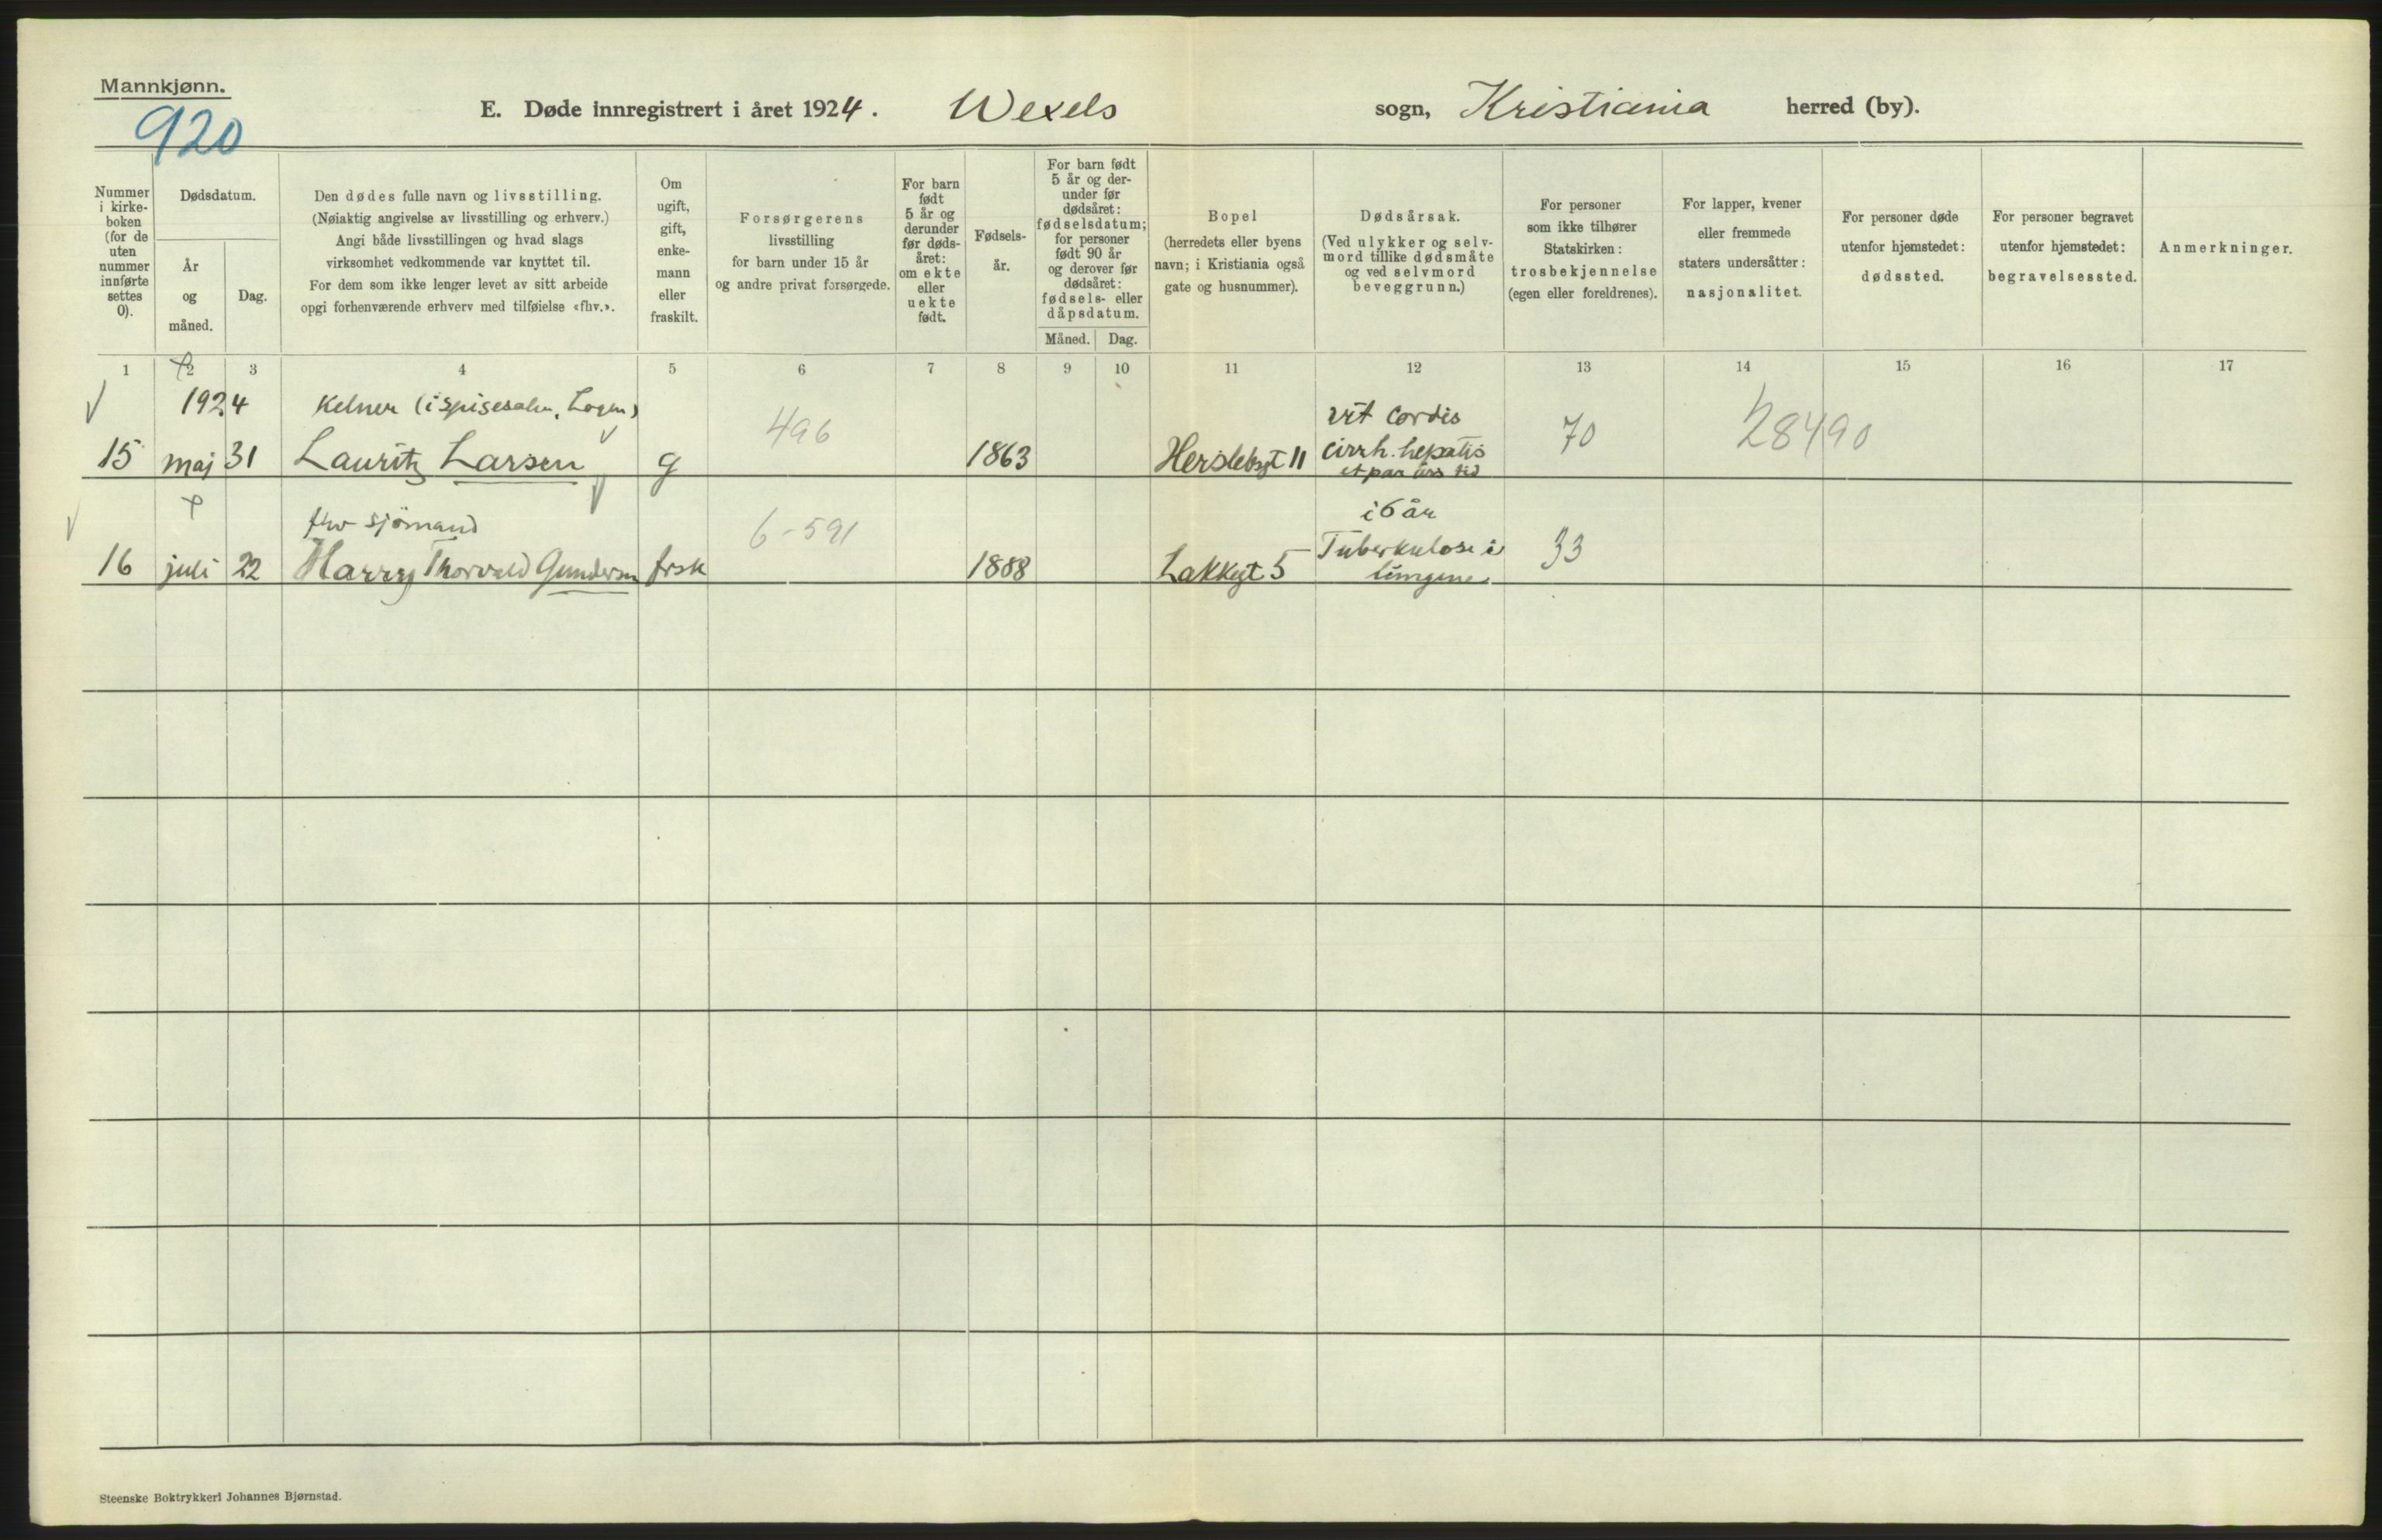 Mannkjønn.
920
E. Døde innregistrert i året 1924. Wexels sogn, Kristiania herred (by).
Nummer
i kirke-
boken
(for de
uten
nummer
innførte
settes
0).
Dødsdatum.
År
og
måned.
Dag.
Den dødes fulle navn og livsstilling.
(Nøiaktig angivelse av livsstilling og erhverv.)
Angi både livsstillingen og hvad slags
virksomhet vedkommende var knyttet til.
For dem som ikke lenger levet av sitt arbeide
opgi forhenværende erhverv med tilføielse «fhv.».
Om
ugift,
gift,
enke-
mann
eller
fraskilt.
Forsørgerens
livsstilling
for barn under 15 år
og andre privat forsørgede.
For barn
født
5 år og
derunder
før døds-
året:
om ekte
eller
uekte
født.
Fødsels-
år.
For barn født
5 år og der-
under før
dødsåret:
fødselsdatum;
for personer
født 90 år
og derover før
dødsåret:
fødsels- eller
dåpsdatum.
Måned. Dag.
Bopel
(herredets eller byens
navn; i Kristiania også
gate og husnummer).
Dødsårsak.
(Ved ulykker og selv-
mord tillike dødsmåte
og ved selvmord
beveggrunn.)
For personer
som ikke tilhører
Statskirken:
trosbekjennelse
(egen eller foreldrenes).
For lapper, kvener
eller fremmede
staters undersåtter:
nasjonalitet.
For personer døde
utenfor hjemstedet:
dødssted.
For personer begravet
utenfor hjemstedet:
begravelsessted.
Anmerkninger.
1 2 3 4 5 6 7 8 9 10 11 12 13 14 15 16 17
1924 Kelner (i spisesalen, Logen) 496 vit cordis 70 28490
15 maj 31 Lauritz Larsen g 1863 Herslebsgt 11 cirrh. hepatis
et par års tid
fhv sjömand 6-591 i 6 år
16 juli 22 Harry Thorvald Gundersen frsk 1888 Lakkegt 5 Tuberkulose i 33
lungene
Steenske Boktrykkeri Johannes Bjørnstad.